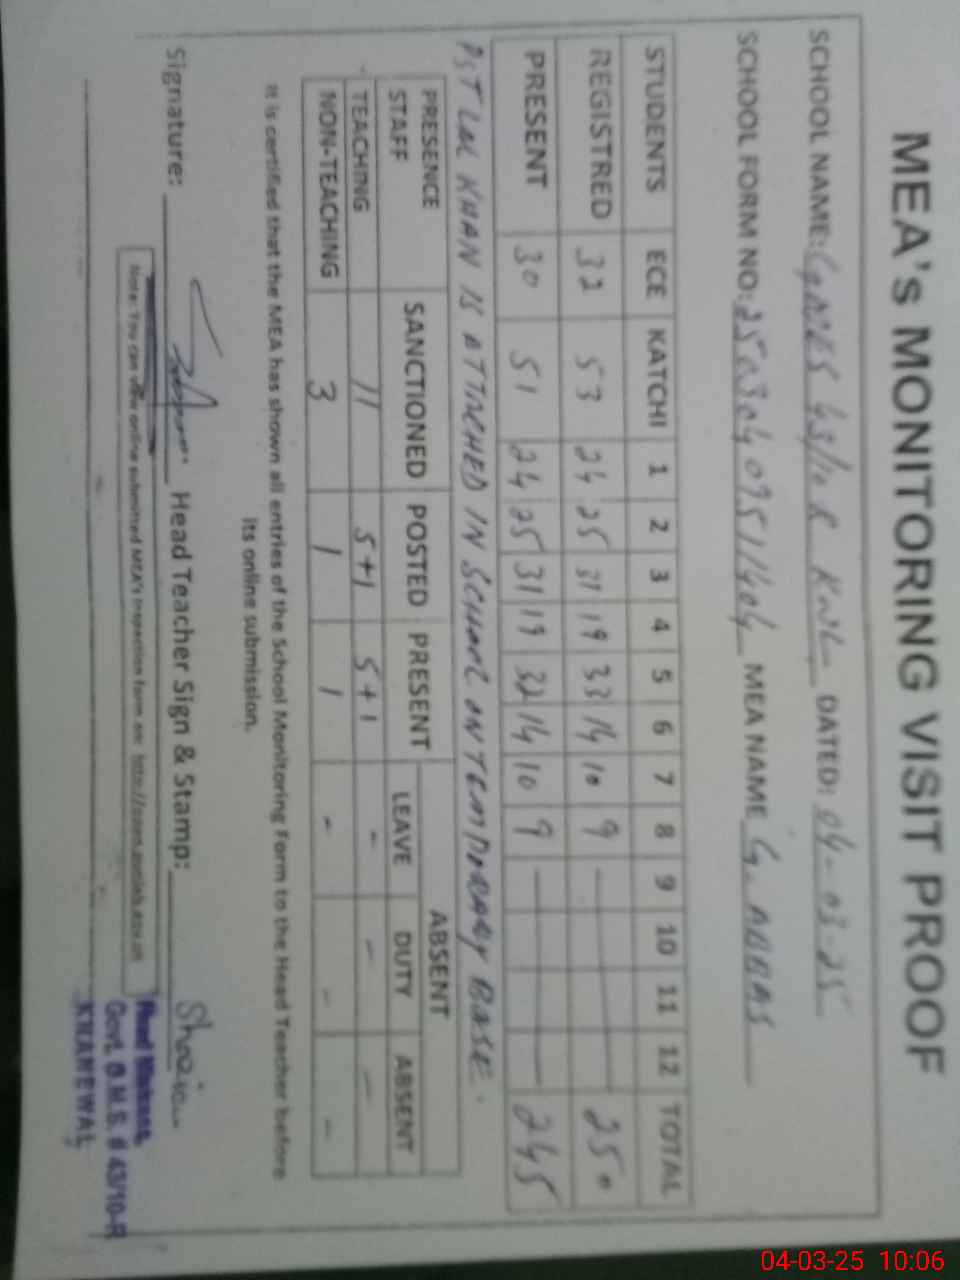 MEA's MONITORING VISIT PROOF
SCHOOL NAME: GGMES 43/10R KWL DATED: 04-03-25
SCHOOL FORM NO: MEA NAME G. ABBAS
STUDENTS ECE KATCHI 1 2 3 4 5 6 7 8 9 10 11 12 TOTAL
REGISTRED 32 53 24 25 31 19 33 14 10 9 — 250
PRESENT 30 51 24 25 31 19 32 14 10 9 — 245
PST LAL KHAN IS ATTACHED IN SCHOOL ON TEMPORARY BASE.
PRESENCE STAFF SANCTIONED POSTED PRESENT ABSENT
LEAVE DUTY ABSENT
TEACHING 11 5+1 5+1 - - -
NON-TEACHING 3 1 1 - - -
It is certified that the MEA has shown all entries of the School Monitoring Form to the Head Teacher before
its online submission.
Signature: Head Teacher Sign & Stamp:
Note: You can view online submitted MEA's inspection form on:
Head Mistress
Govt. G.M.S. # 43/10-R
KHANEWAL
04-03-25 10:06